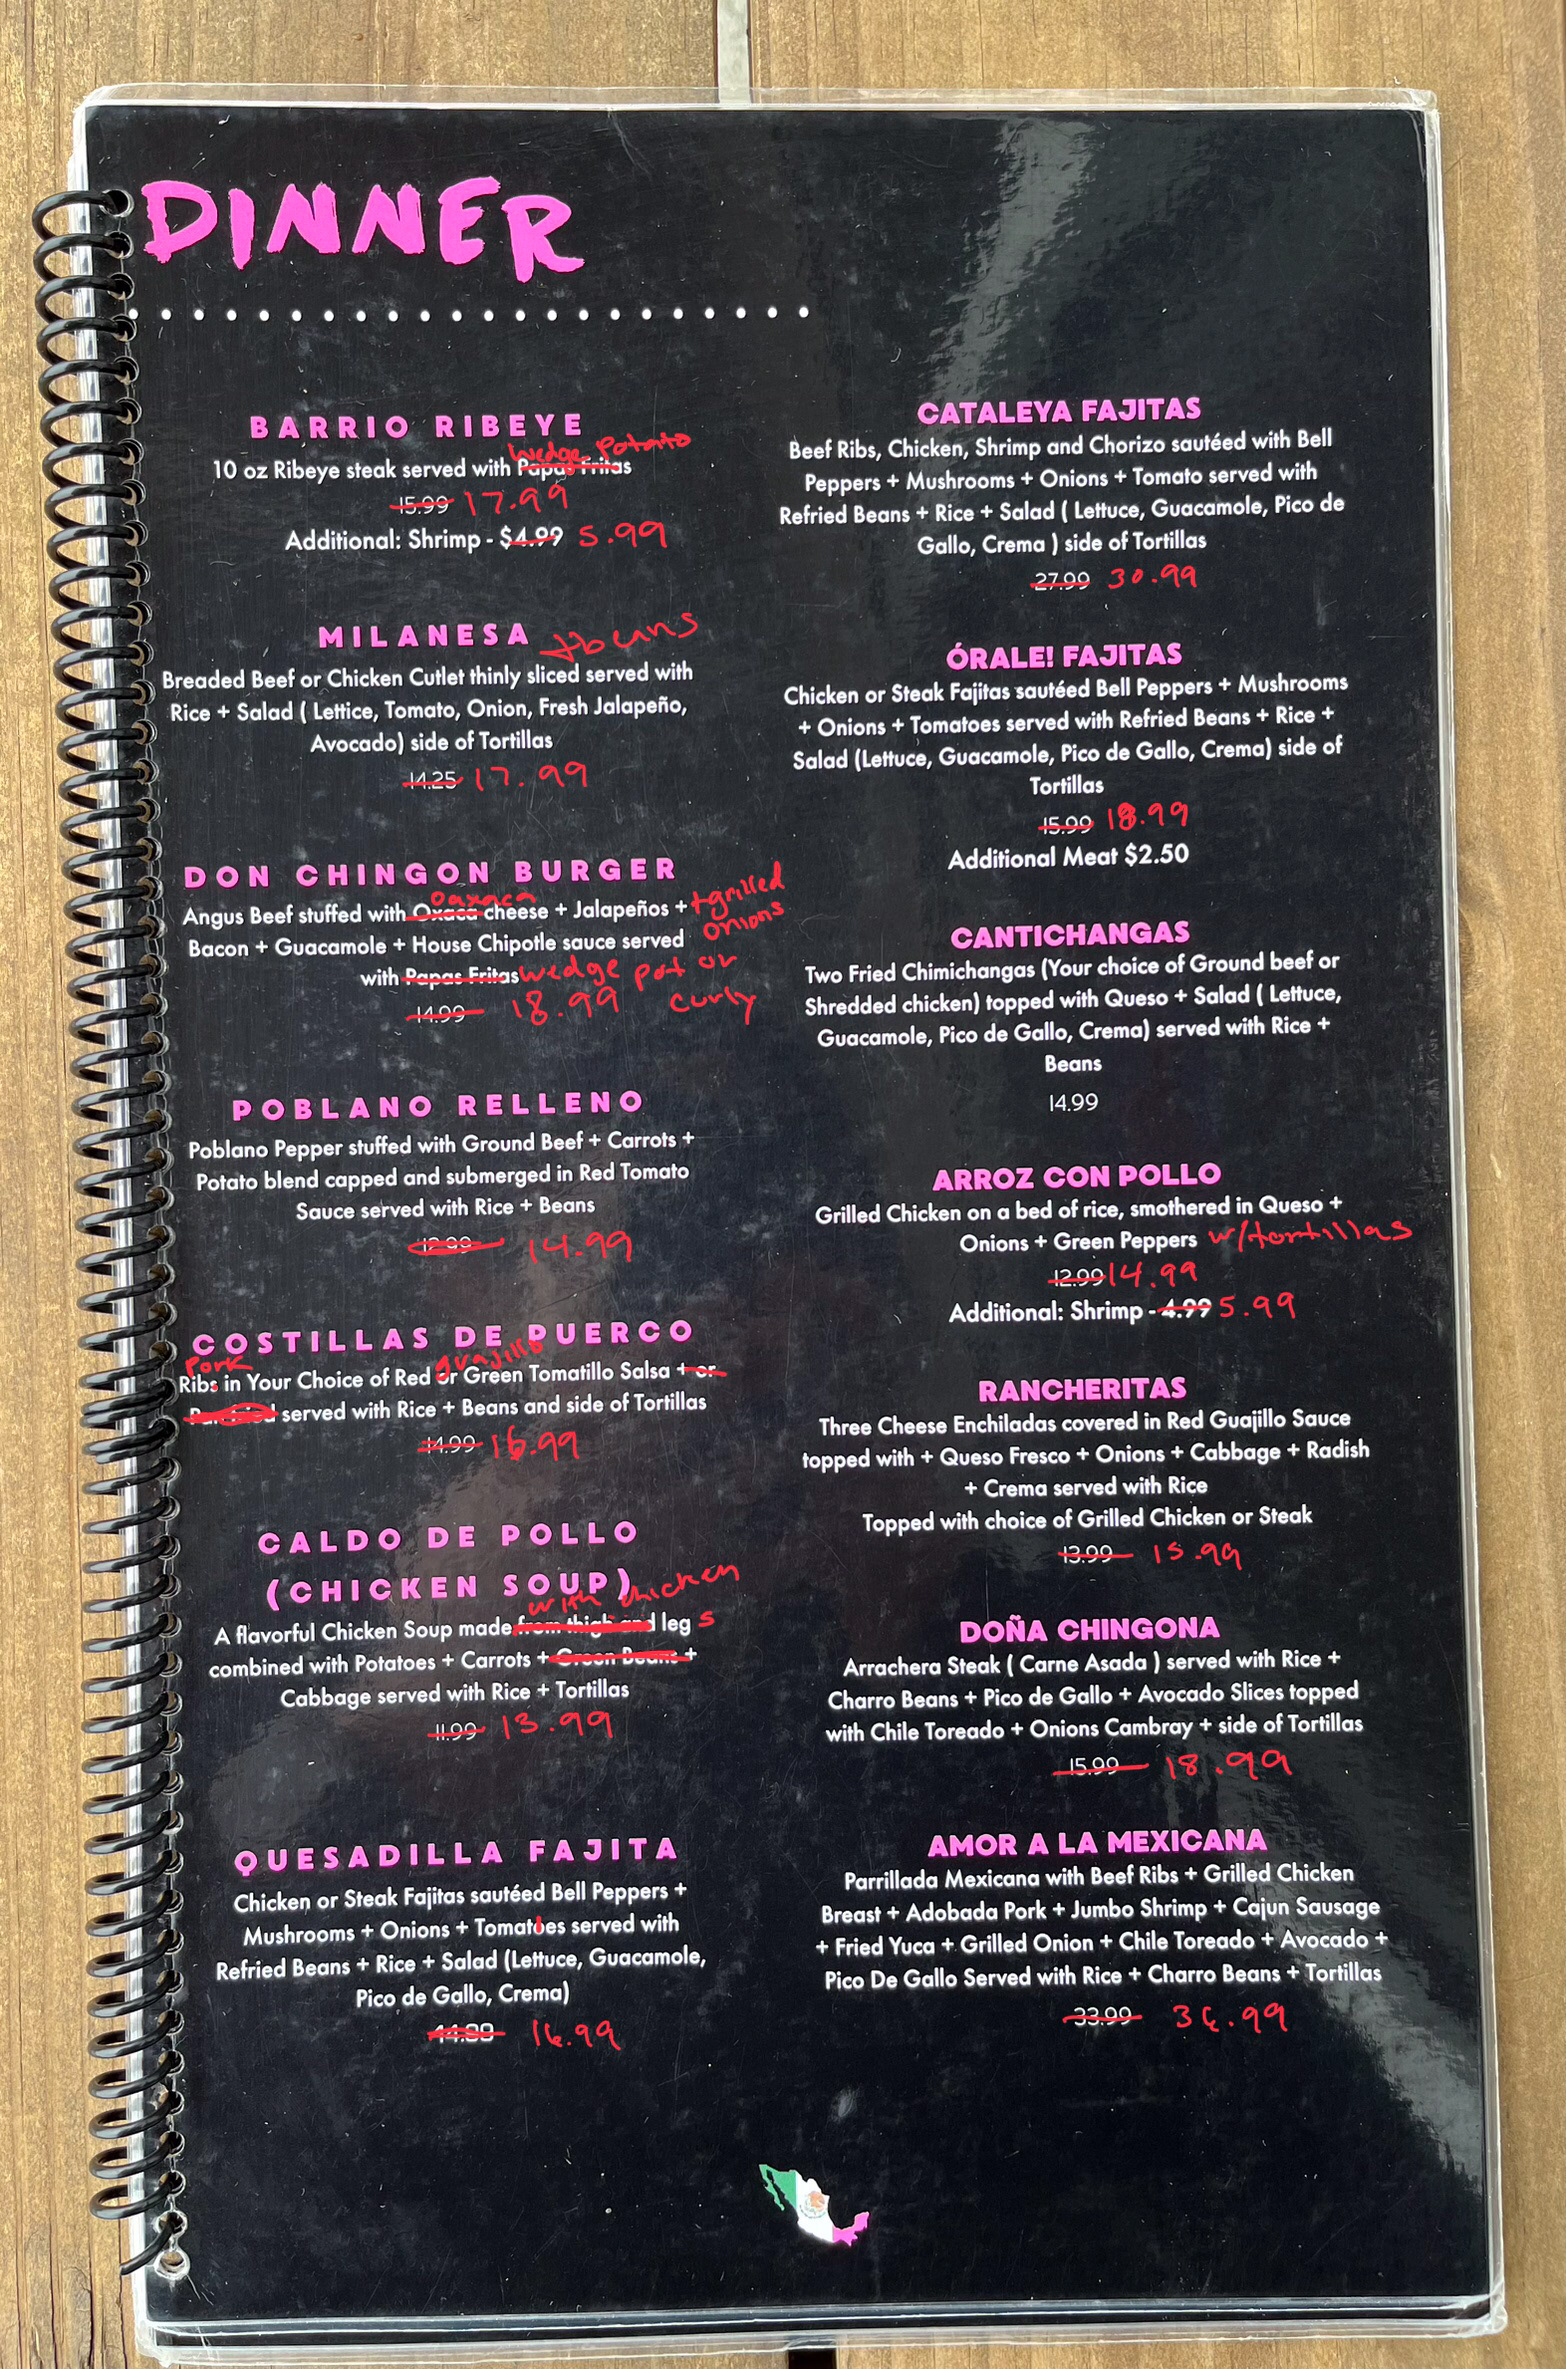 DINNER
BARRIO RIBEYE
wedge potato
10 oz Ribeye steak served with Papas Fritas
15.99 17.99
Additional: Shrimp - $4.99 5.99
MILANESA +beans
Breaded Beef or Chicken Cutlet thinly sliced served with
Rice + Salad ( Lettice, Tomato, Onion, Fresh Jalapeño,
Avocado) side of Tortillas
14.25 17.99
DON CHINGON BURGER
oaxaca
Angus Beef stuffed with Oxaca cheese + Jalapeños + +grilled
onions
Bacon + Guacamole + House Chipotle sauce served
with Papas Fritas wedge pot or
curly
14.99 18.99
POBLANO RELLENO
Poblano Pepper stuffed with Ground Beef + Carrots +
Potato blend capped and submerged in Red Tomato
Sauce served with Rice + Beans
12.99 14.99
COSTILLAS DE PUERCO
Pork guajillo
Ribs in Your Choice of Red or Green Tomatillo Salsa + or
served with Rice + Beans and side of Tortillas
14.99 16.99
CALDO DE POLLO
(CHICKEN SOUP)
with chicken
A flavorful Chicken Soup made from thigh and leg s
combined with Potatoes + Carrots + Green Beans +
Cabbage served with Rice + Tortillas
11.99 13.99
QUESADILLA FAJITA
Chicken or Steak Fajitas sautéed Bell Peppers +
Mushrooms + Onions + Tomatoes served with
Refried Beans + Rice + Salad (Lettuce, Guacamole,
Pico de Gallo, Crema)
14.99 16.99
CATALEYA FAJITAS
Beef Ribs, Chicken, Shrimp and Chorizo sautéed with Bell
Peppers + Mushrooms + Onions + Tomato served with
Refried Beans + Rice + Salad ( Lettuce, Guacamole, Pico de
Gallo, Crema ) side of Tortillas
27.99 30.99
ÓRALE! FAJITAS
Chicken or Steak Fajitas sautéed Bell Peppers + Mushrooms
+ Onions + Tomatoes served with Refried Beans + Rice +
Salad (Lettuce, Guacamole, Pico de Gallo, Crema) side of
Tortillas
15.99 18.99
Additional Meat $2.50
CANTICHANGAS
Two Fried Chimichangas (Your choice of Ground beef or
Shredded chicken) topped with Queso + Salad ( Lettuce,
Guacamole, Pico de Gallo, Crema) served with Rice +
Beans
14.99
ARROZ CON POLLO
Grilled Chicken on a bed of rice, smothered in Queso +
Onions + Green Peppers w/tortillas
12.99 14.99
Additional: Shrimp - 4.99 5.99
RANCHERITAS
Three Cheese Enchiladas covered in Red Guajillo Sauce
topped with + Queso Fresco + Onions + Cabbage + Radish
+ Crema served with Rice
Topped with choice of Grilled Chicken or Steak
13.99 15.99
DOÑA CHINGONA
Arrachera Steak ( Carne Asada ) served with Rice +
Charro Beans + Pico de Gallo + Avocado Slices topped
with Chile Toreado + Onions Cambray + side of Tortillas
15.99 18.99
AMOR A LA MEXICANA
Parrillada Mexicana with Beef Ribs + Grilled Chicken
Breast + Adobada Pork + Jumbo Shrimp + Cajun Sausage
+ Fried Yuca + Grilled Onion + Chile Toreado + Avocado +
Pico De Gallo Served with Rice + Charro Beans + Tortillas
33.99 36.99